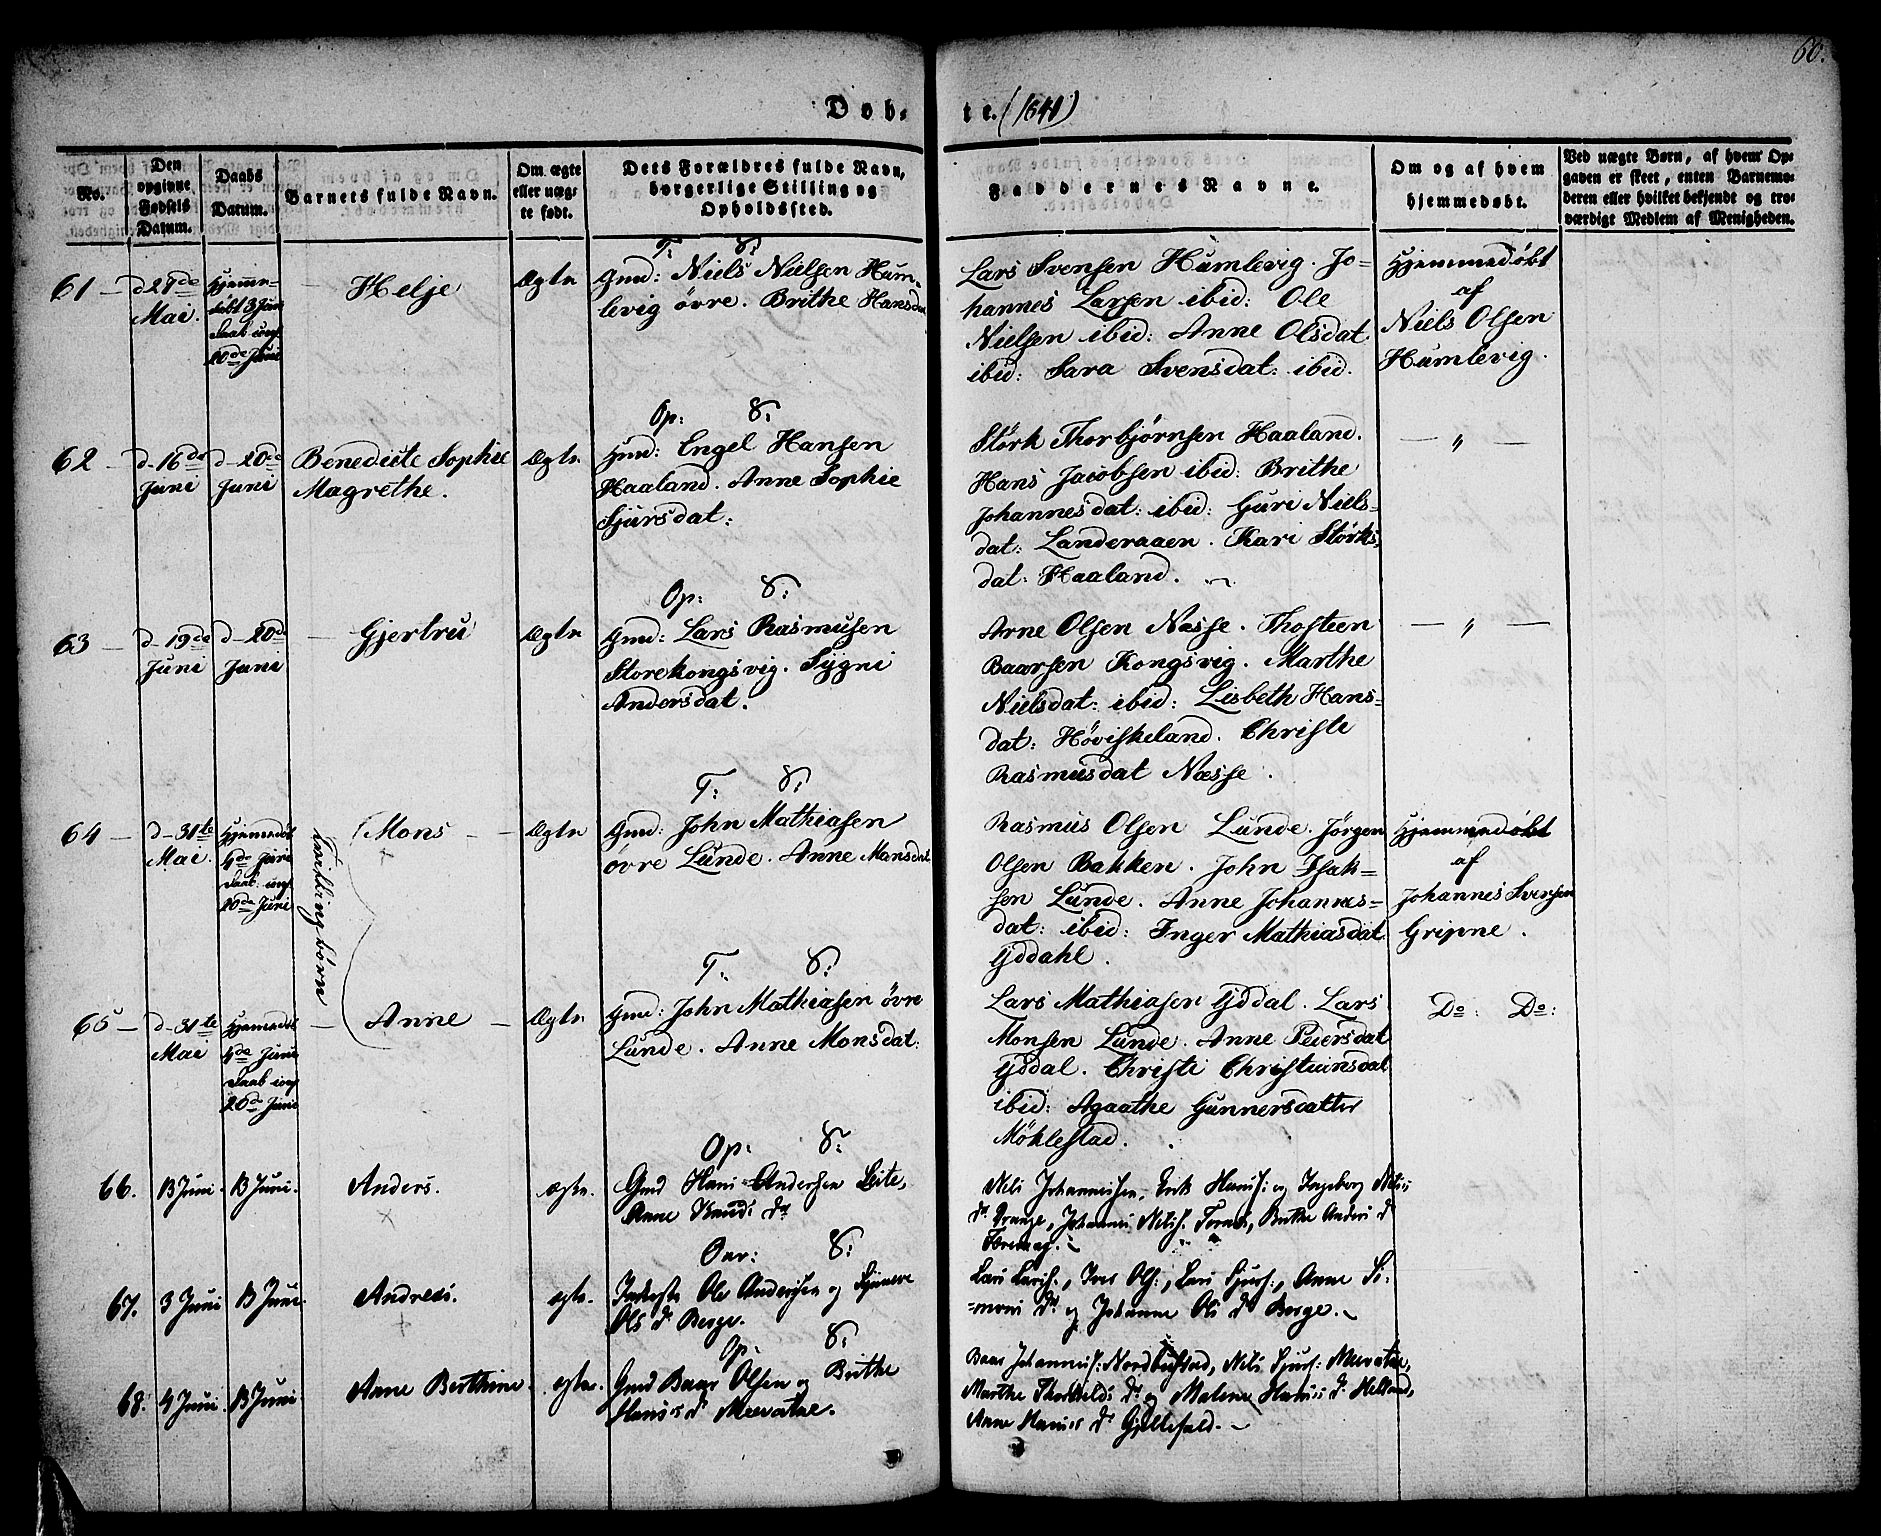 60.
Døb-te. (1841)
No.
Den opgivne Fødsels Datum.
Daabs Datum.
Barnets fulde Navn.
Om ægte eller uægte født.
Dets Forældres fulde Navn, borgerlige Stilling og Opholdssted.
Faddernes Navne.
Om og af hvem hjemmedøbt.
Ved uægte Børn, af hvem Op-
gaven er skeet, enten Barnemo-
deren eller hvilket bekjendt og tro-
værdigt Medlem af Menigheden.
61 — d 29de Mai. Hjemme-
døbt 3 Juni
Daab
20de Juni
Helje
Ægte
T: S:
Gmd: Niels Nielsen Hum-
levig øvre. Brithe Hansdat
Lars Svensen Humlevig. Jo-
hannes Larsen ibid: Ole
Nielsen ibid: Anne Olsdat
ibid: Sara Svensdat: ibid.
Hjemmedøbt
af
Niels Olsen
Humlevig.
62 — d—16de Juni
d—20de Juni
Benedicte Sophie
Magrethe.
Ægte.
Op: S:
Gmd: Engel Hansen
Haaland. Anne Sophie
Sjursdat:
Størk Thorbjørnsen Haaland.
Hans Jacobsen ibid: Brithe
Johannesdat: ibid: Guri Niels-
dat: Landeraaen. Kari Størks-
dat: Haaland.
— " —
63 — d—19de Juni
d—20de Juni
— Gjertru
Ægte
Op: S:
Gmd: Lars Rasmusen
Storekongsvig. Sygni
Andersdat.
Arne Olsen Næsse. Thosteen
Baarsen Kongsvig. Marthe
Nielsdat: ibid: Lisbeth Hans-
dat: Høviskeland. Christe
Rasmusdat Næsse.
— " —
64 — d—31te Mai.
Hjemmedøbt
4de Juni
Daab
20de Juni
Tvillingbørn
Mons —
Ægte
T: S:
Gmd: John Mathiasen
øvre Lunde. Anne Monsdat
Rasmus Olsen Lunde. Jørgen
Olsen Bakken. John Isak-
sen Lunde. Anne Johannes-
dat: ibid: Inger Mathiasdat
Yddahl.
Hjemmedøbt
af
Johannes Svensen
Gripne.
65 — d—31te Mai
Hjemmedøbt
4de Juni
Daab
20de Juni
— Anne —
Ægte.
T: S:
Gmd: John Mathiasen øvre
Lunde. Anne Monsdat:
Lars Mathiasen Yddal. Lars
Monsen Lunde. Anne Peiersdat
Yddal. Christi Christiansdat
ibid: Agaathe Gunnersdatter
Møhlestad.
Do: Do:
66. 13 Juni. 13 Juni. Anders. ægte.
Op: S:
Gmd Hans Andersen Leite,
Anne Knuds Dr
Nils Johannessen, Erik Hans: og Ingeborg Nils
Dr Drange, Johannes Nils. Brithe Anders d
67. 3 Juni 13 Juni. Andreas. ægte.
S:
Ole Andersen og
Ols Dr Berge.
Lars Lars., Iver Ols:, Lars Sjurs:, Anne Si-
=mons Dr og Johanne Ols Dr Berge.
68. 4 Juni. 13 Juni Anne Berthine. ægte.
Op: S:
Gmd Baar Olsen og Brithe
Hanses Dr Mevatne.
Baar Johannes: Nils Sjurs: Mevatne,
Marthe Thorkilds Dr og Malene Hanses Dr Helland,
Anne Hanses Dr